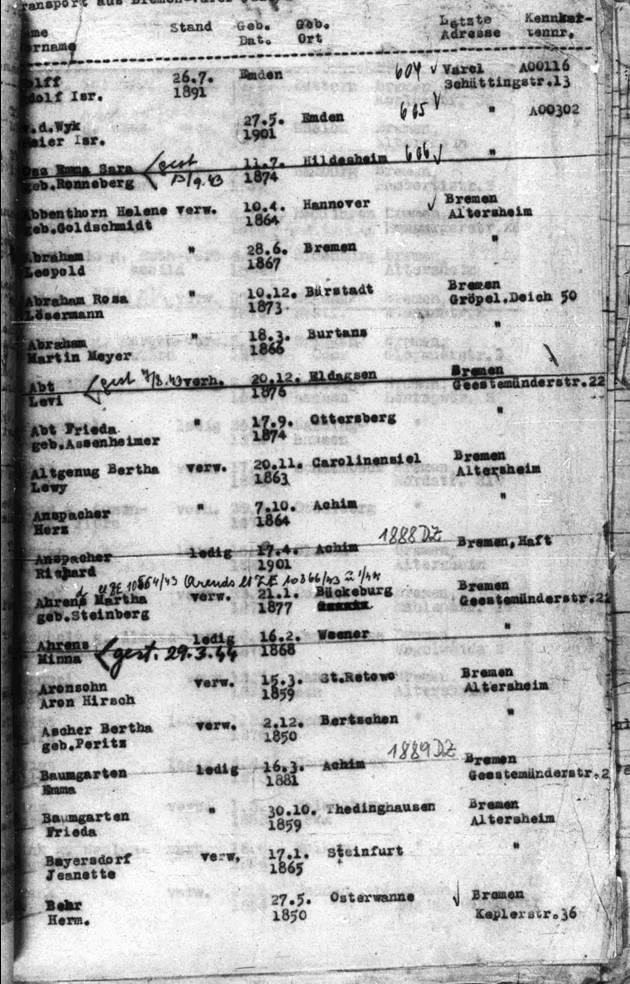 ransport aus Bremen
ame Stand Geb. Geb. Letzte Kennkar-
orname Dat. Ort Adresse tennr.
olff 26.7. Emden 604 Varel A00116
dolf Isr. 1891 Schüttingstr.13
.d.Wyk 27.5. Emden 605 " A00302
eier Isr. 1901
Oss Emma Sara gest 11.7. Hildesheim 606
geb.Ronneberg 13/9.43 1874
Abbenthorn Helene verw. 10.4. Hannover Bremen
geb.Goldschmidt 1864 Altersheim
Abraham " 28.6. Bremen "
Leopold 1867
Abraham Rosa " 10.12. Bürstadt Bremen
Lösermann 1873 Gröpel.Deich 50
Abraham " 18.3. Burtans "
Martin Meyer 1866
Abt gest 7/8.43 verh. 20.12. Eldagsen Bremen
Levi 1876 Geestemünderstr.22
Abt Frieda " 17.9. Ottersberg "
geb.Assenheimer 1874
Altgenug Bertha verw. 20.11. Carolinensiel Bremen
Lewy 1863 Altersheim
Anspacher " 7.10. Achim "
Herz 1864
1888 DZ
Anspacher ledig 17.4. Achim Bremen,Haft
Richard 1901
Ahrens Martha verw. 21.1. Bückeburg Bremen
geb.Steinberg 1877 Geestemünderstr.22
Ahrens ledig 16.2. Weener "
Minna gest. 29.3.44 1868
Aronsohn verw. 15.3. St.Retowo Bremen
Aron Hirsch 1859 Altersheim
Ascher Bertha verw. 2.12. Bertschen "
geb.Peritz 1850
1889 DZ
Baumgarten ledig 16.3. Achim Bremen
Emma 1881 Geestemünderstr.2
Baumgarten " 30.10. Thedinghausen Bremen
Frieda 1859 Altersheim
Bayersdorf verw. 17.1. Steinfurt "
Jeanette 1865
Behr 27.5. Osterwanne Bremen
Herm. 1850 Keplerstr.36